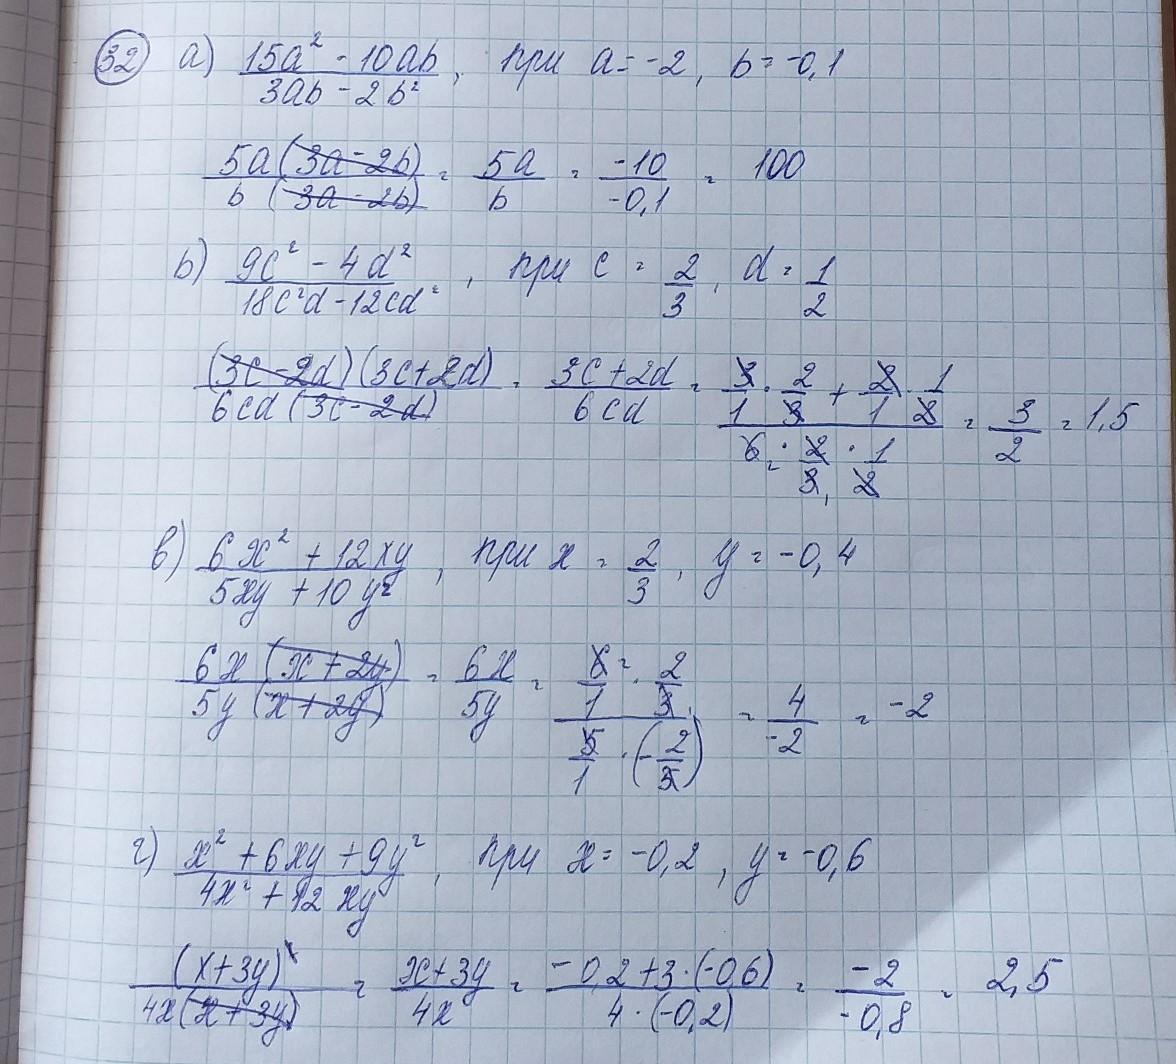 32 а) (15a² - 10ab)/(3ab - 2b²), при a = -2, b = -0,1
(5a(3a - 2b))/(b(3a - 2b)) = 5a/b = -10/-0,1 = 100
b) (9c² - 4d²)/(18c²d - 12cd²), при c = 2/3, d = 1/2
((3c - 2d)(3c + 2d))/(6cd(3c - 2d)) = (3c + 2d)/(6cd) = (3/1 · 2/3 + 2/1 · 1/2)/(6 · 2/3 · 1/2) = 3/2 = 1,5
в) (6x² + 12xy)/(5xy + 10y²), при x = 2/3, y = -0,4
(6x(x + 2y))/(5y(x + 2y)) = 6x/5y = (6/1 · 2/3)/(5/1 · (-2/5)) = 4/-2 = -2
г) (x² + 6xy + 9y²)/(4x² + 12xy), при x = -0,2, y = -0,6
(x + 3y)²/(4x(x + 3y)) = (x + 3y)/4x = (-0,2 + 3·(-0,6))/(4·(-0,2)) = -2/-0,8 = 2,5